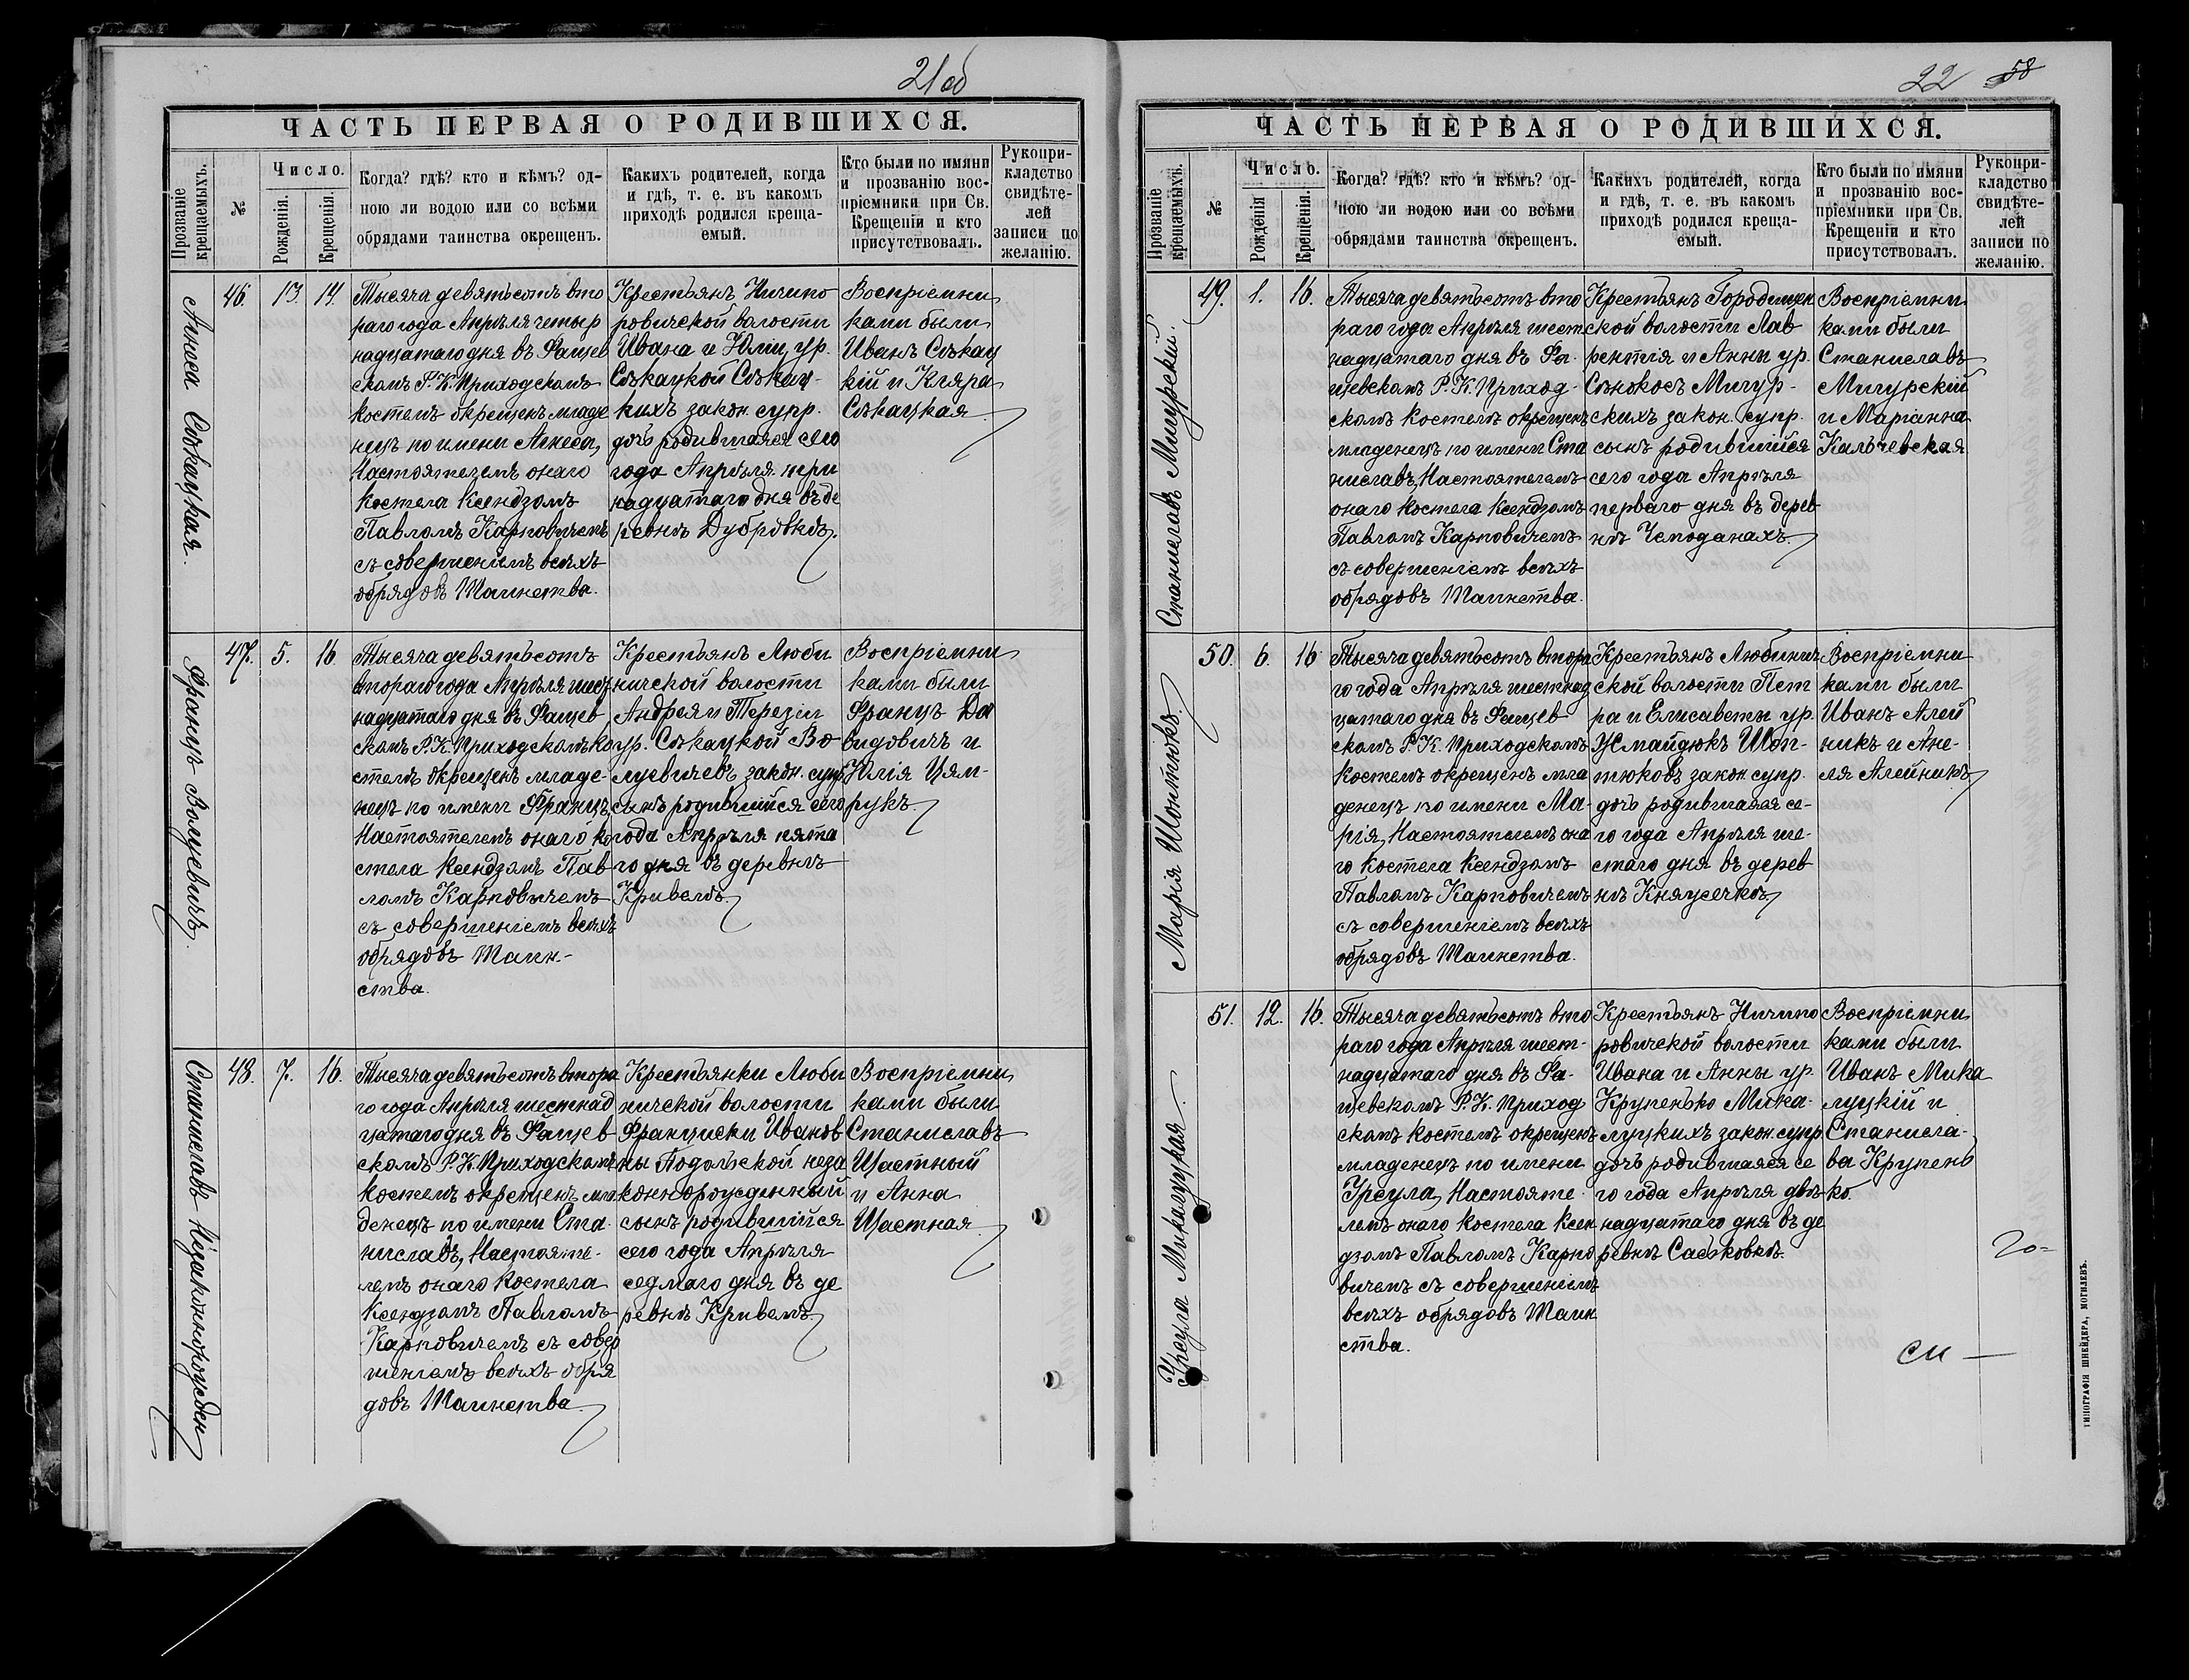 21 об
ЧАСТЬ ПЕРВАЯ О РОДИВШИХСЯ.
Прозваніе крещаемыхъ.
№
Число.
Рожденія.
Крещенія.
Когда? гдѣ? кто и кѣмъ? од-
ною ли водою или со всѣми
обрядами таинства окрещенъ.
Какихъ родителей, когда
и гдѣ, т. е. въ какомъ
приходѣ родился креща-
емый.
Кто были по имяни
и прозванію вос-
пріемники при Св.
Крещеніи и кто
присутствовалъ.
Рукопри-
кладство
свидѣте-
лей
записи по
желанію.
Агнеса Сѣкацкая.
46.
13.
14.
Тысяча девятьсотъ вто
раго года Апрѣля четыр
надцатаго дня въ Фащев
скомъ Р. К. Приходскомъ
костелѣ окрещенъ младе
нецъ по имени Агнеса,
Настоятелемъ онаго
костела Ксендзомъ
Павломъ Карповичемъ
съ совершеніемъ всѣхъ
обрядовъ Таинства.
Крестьянъ Ничипо
ровичской волости
Ивана и Юліи ур.
Сѣкацкой Сѣкац-
кихъ закон. супр.
дочь родившаяся сего
года Апрѣля три
надцатаго дня въ де
ревнѣ Дубровкѣ.
Воспріемни
ками были
Иванъ Сѣкац
кій и Кляра
Сѣкацкая
Францъ Волуевичъ
47.
5.
16.
Тысяча девятьсотъ
втораго года Апрѣля шест
надцатаго дня въ Фащев
скомъ Р. К. Приходскомъ ко
стелѣ окрещенъ младе-
нецъ по имени Францъ,
Настоятелемъ онаго ко
стела Ксендзомъ Пав
ломъ Карповичемъ
съ совершеніемъ всѣхъ
обрядовъ Таин-
ства.
Крестьянъ Люби
ничской волости
Андрея и Терезіи
ур. Сѣкацкой Во-
луевичевъ закон. супр.
сынъ родившійся сего
года Апрѣля пята
го дня въ деревнѣ
Кривелѣ.
Воспріемни
ками были
Францъ Да
видовичъ и
Юлія Цям-
рукъ.
Станиславъ Незаконнорожден
48.
7.
16.
Тысяча девятьсотъ втора
го года Апрѣля шестнад
цатаго дня въ Фащев
скомъ Р. К. Приходскомъ
костелѣ окрещенъ мла
денецъ по имени Ста-
ниславъ, Настояте-
лемъ онаго костела
Ксендзомъ Павломъ
Карповичемъ съ совер
шеніемъ всѣхъ обря
довъ Таинства
Крестьянки Люби
ничской волости
Франциски Иванов
ны Подольской неза
коннорожденный
сынъ родившійся
сего года Апрѣля
седмаго дня въ де
ревнѣ Кривелѣ.
Воспріемни
ками были
Станиславъ
Щастный
и Анна
Щастная
22 58
ЧАСТЬ ПЕРВАЯ О РОДИВШИХСЯ.
Прозваніе крещаемыхъ.
№
Число.
Рожденія
Крещенія.
Когда? гдѣ? кто и кѣмъ? од-
ною ли водою или со всѣми
обрядами таинства окрещенъ.
Какихъ родителей, когда
и гдѣ, т. е. въ какомъ
приходѣ родился креща-
емый.
Кто были по имяни
и прозванію вос-
пріемники при Св.
Крещеніи и кто
присутствовалъ.
Рукопри-
кладство
свидѣте-
лей
записи по
желанію.
Станиславъ Мигурскій.
49.
1.
16.
Тысяча девятьсотъ вто
раго года Апрѣля шест
надцатаго дня въ Фа-
щевскомъ Р. К. Приход-
скомъ костелѣ окрещенъ
младенецъ по имени Ста
ниславъ, Настоятелемъ
онаго костела Ксендзомъ
Павломъ Карповичемъ
съ совершеніемъ всѣхъ
обрядовъ Таинства.
Крестьянъ Городищен
ской волости Лав
рентія и Анны ур.
Сѣнокосъ Мигур-
скихъ закон. супр.
сынъ родившійся
сего года Апрѣля
перваго дня въ дерев
нѣ Чемоданахъ.
Воспріемни
ками были
Станиславъ
Мигурскій
и Маріанна
Кальчевская
Марія Шоптюкъ.
50.
6.
16
Тысяча девятьсотъ втора
го года Апрѣля шестнад
цатаго дня въ Фащев
скомъ Р. К. Приходскомъ
костелѣ окрещенъ мла
денецъ по имени Ма-
рія, Настоятелемъ она
го костела Ксендзомъ
Павломъ Карповичемъ
съ совершеніемъ всѣхъ
обрядовъ Таинства.
Крестьянъ Любинич
ской волости Пет
ра и Елисаветы ур.
Жмайдюкъ Шоп-
тюковъ закон. супр.
дочь родившаяся се-
го года Апрѣля ше-
стаго дня въ дерев
нѣ Княжечкѣ.
Воспріемни
ками были
Иванъ Алей
никъ и Ане-
ля Алейникъ
Урсула Микалуцкая.
51.
12.
16.
Тысяча девятьсотъ вто
раго года Апрѣля шест-
надцатаго дня въ Фа-
щевскомъ Р. К. Приход
скомъ костелѣ окрещенъ
младенецъ по имени
Урсула, Настояте-
лемъ онаго костела Ксен
дзомъ Павломъ Карпо
вичемъ съ совершеніемъ
всѣхъ обрядовъ Таин
ства.
Крестьянъ Ничипо
ровичской волости
Ивана и Анны ур.
Крупенько Мика-
луцкихъ закон. супр.
дочь родившаяся се
го года Апрѣля двѣ
надцатаго дня въ де
ревнѣ Саськовкѣ.
Воспріемни
ками были
Иванъ Мика
луцкій и
Станисла-
ва Крупень
ко.
ТИПОГРАФІЯ ШНЕЙДЕРА, МОГИЛЕВЪ.